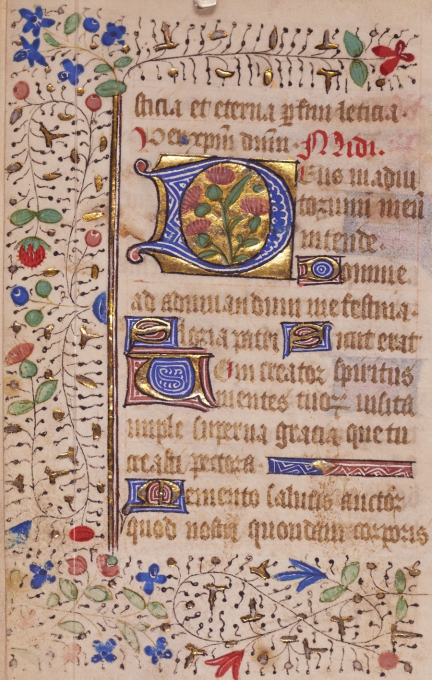 sticia et eterna pfrui leticia.
Per xpm dnm. Midi.
Deus in adiu
torium meu
intende.
Domine
ad adiuuandum me festina.
Gloria patri Sicut erat
Veni creator spiritus
mentes tuor uisita
imple superna gracia que tu
creasti pectora.
Memento salutis auctor
quod nostri quondam corporis